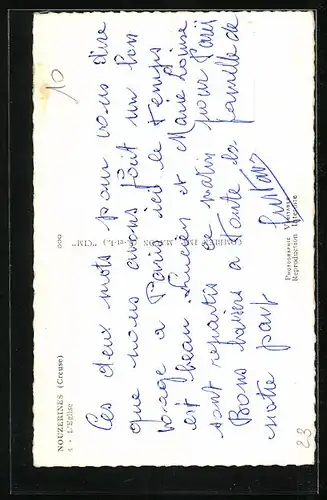 NOUZERINES (Creuse)
4 - L'Église
Ces deux mots pour vous dire
que nous avons fait un bon
voyage a Paris ici le temps
est beau Lucien et Marie Louise
sont repartis ce matin pour Paris
Bons baisers a Toute la famille de
notre part
COMBIER IMP. MACON (S.-et-L.) "CIM"
PHOTOGRAPHIE VÉRITABLE
Reproduction Interdite
10
23